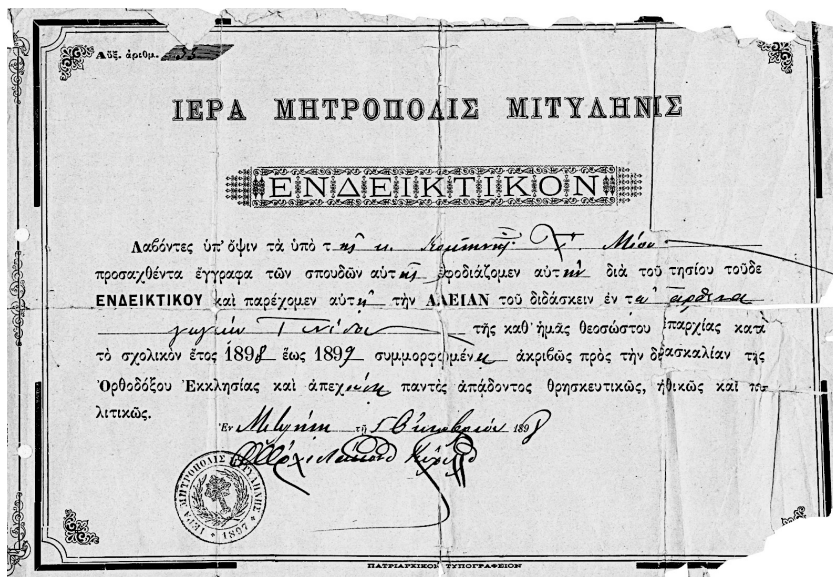 Αὔξ. ἀριθμ.
ΙΕΡΑ ΜΗΤΡΟΠΟΛΙΣ ΜΙΤΥΛΗΝΙΣ
ΕΝΔΕΙΚΤΙΚΟΝ
Λαβόντες ὑπ' ὄψιν τὰ ὑπὸ τῆς κ. Κομνηνῆς Χ. Μίσιου
προσαχθέντα ἔγγραφα τῶν σπουδῶν αὐτῆς ἐφοδιάζομεν αὐτὴν διὰ τοῦ τησίου τοῦδε
ΕΝΔΕΙΚΤΙΚΟΥ καὶ παρέχομεν αὐτῇ τὴν ΑΔΕΙΑΝ τοῦ διδάσκειν ἐν τῷ Παρθενα
γωγείῳ τῆς καθ' ἡμᾶς θεοσώστου ἐπαρχίας κατὰ
τὸ σχολικὸν ἔτος 1898 ἕως 1899 συμμορφωμένη ἀκριβῶς πρὸς τὴν διδασκαλίαν τῆς
Ὀρθοδόξου Ἐκκλησίας καὶ ἀπεχούσῃ παντὸς ἀπᾴδοντος θρησκευτικῶς, ἠθικῶς καὶ πο
λιτικῶς.
Ἐν Μιτυλήνῃ τῇ 5 Ὀκτωβρίου 1898
ΙΕΡΑ ΜΗΤΡΟΠΟΛΙΣ ΜΙΤΥΛΗΝΗΣ
1897
ΠΑΤΡΙΑΡΧΙΚΟΝ ΤΥΠΟΓΡΑΦΕΙΟΝ